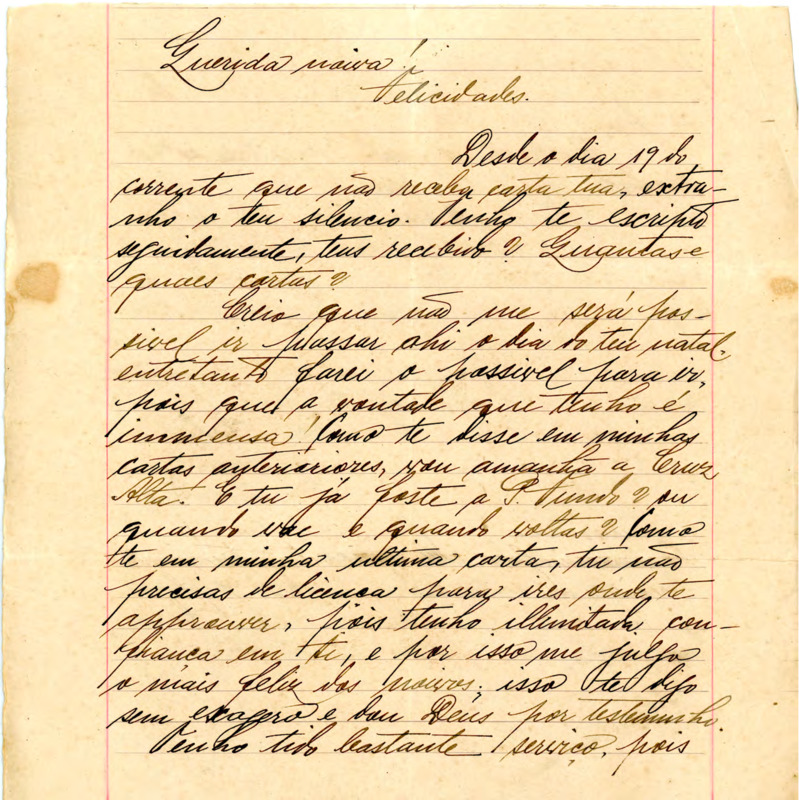 Querida noiva!
Felicidades.
Desde o dia 19 do
corrente que não recebo carta tua, extra-
nho o teu silencio. Tenho te escripto
seguidamente, tens recebido? Quantas e
quaes cartas?
Creio que não me será pos-
sivel ir passar ahi o dia do teu natal,
entretanto farei o possivel para ir,
pois que a vontade que tenho é
immensa! Como te disse em minhas
cartas anterioriores, vou amanhã a Cruz
Alta. E tu já foste a P. Fundo? ou
quando vae e quando voltas? Como
te em minha ultima carta, tu não
precisas de licença para ires onde te
approuver, pois tenho illimitada con-
fiança em ti, e por isso me julgo
o mais feliz dos noivos; isso te digo
sem exagero e dou Deus por testemunho.
Tenho tido bastante serviço, pois